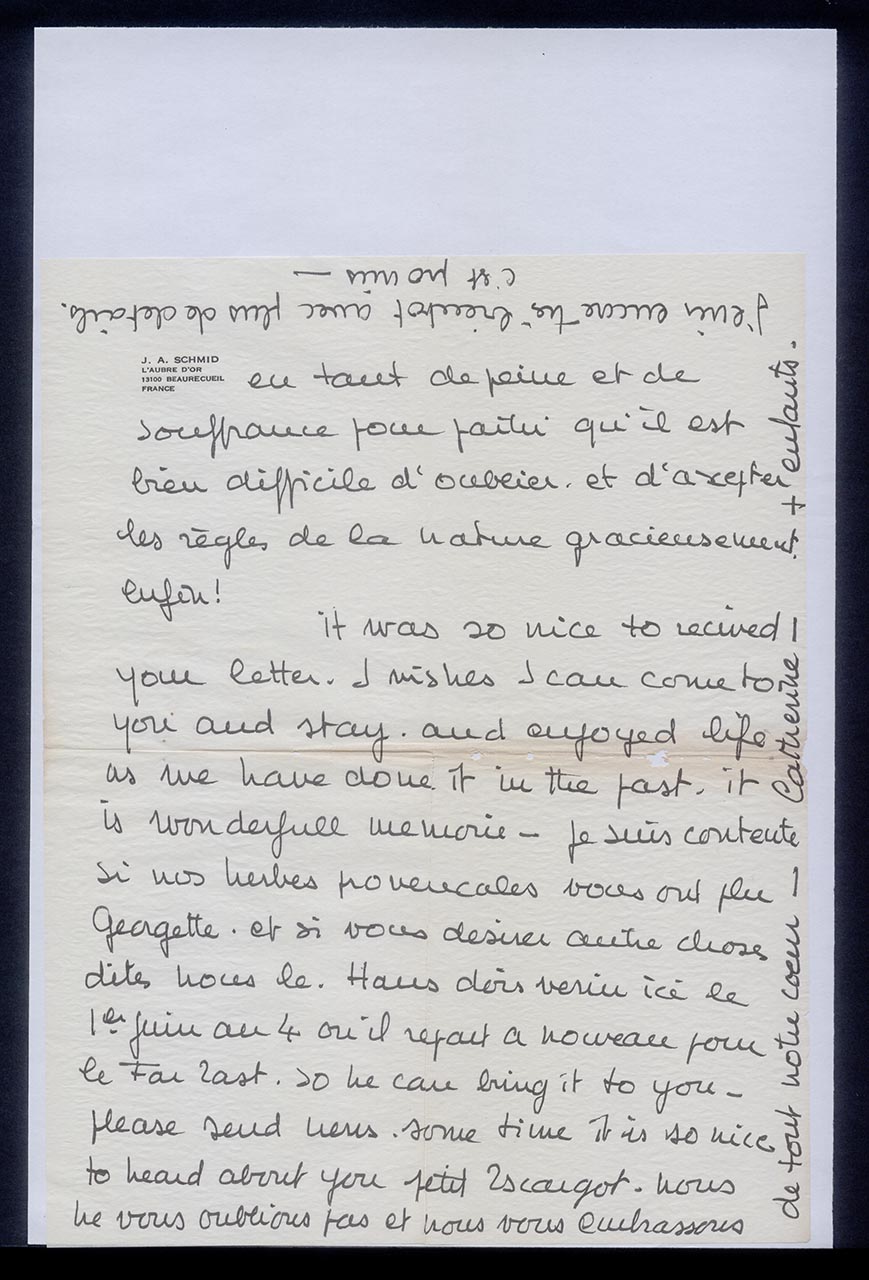 J. A. SCHMID
L'AUBRE D'OR
13100 BEAURECUEIL
FRANCE
eu tant de peine et de
souffrance pour partir qu'il est
bien difficile d'oublier. et d'axepter
les règles de la nature gracieusement.
enfin!
it was so nice to recived
your letter. I wishes I can come to
you and stay. and enjoyed life
as we have done it in the past. it
is wonderfull memorie – je suis contente
si nos herbes provencales vous ont plu
Georgette. et si vous desirer autre choses
dites nous le. Hans dois venir ici le
1er juin au 4 où il repart a nouveau pour
le Far East. so he can bring it to you –
please send news. some time it is so nice
to heard about you petit Escargot. nous
ne vous oublions pas et nous vous embrassons
de tout notre coeur – Catherine – + enfants.
J'ecris encore très bientot avec plus de details.
c'est promis –